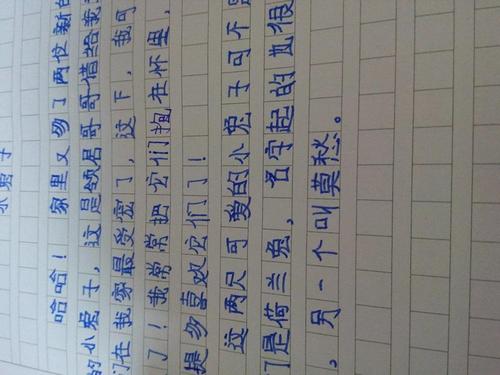 兔子
哈哈！家里又多了两位新
的小兔子，这是领居哥哥借给我
们在我家最受宠了，这下，我可
了！我常常把它们抱在怀里，
提多喜欢它们了！
这两只可爱的小兔子可不
们是荷兰兔，名字起的也很
，另一个叫莫愁。